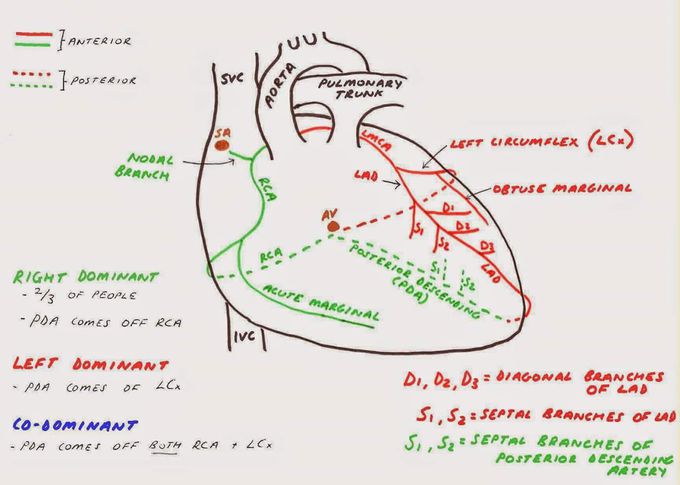 ANTERIOR
POSTERIOR
SVC
AORTA
PULMONARY
TRUNK
SA
NODAL
BRANCH
RCA
LMCA
LEFT CIRCUMFLEX (LCx)
LAD
OBTUSE MARGINAL
AV
D1
D2
D3
S1
S2
LAD
RCA
S1
S2
POSTERIOR DESCENDING
(PDA)
ACUTE MARGINAL
IVC
RIGHT DOMINANT
- 2/3 OF PEOPLE
- PDA COMES OFF RCA
LEFT DOMINANT
- PDA COMES OF LCx
CO-DOMINANT
- PDA COMES OFF BOTH RCA + LCx
D1, D2, D3 = DIAGONAL BRANCHES
OF LAD
S1, S2 = SEPTAL BRANCHES OF LAD
S1, S2 = SEPTAL BRANCHES OF
POSTERIOR DESCENDING
ARTERY